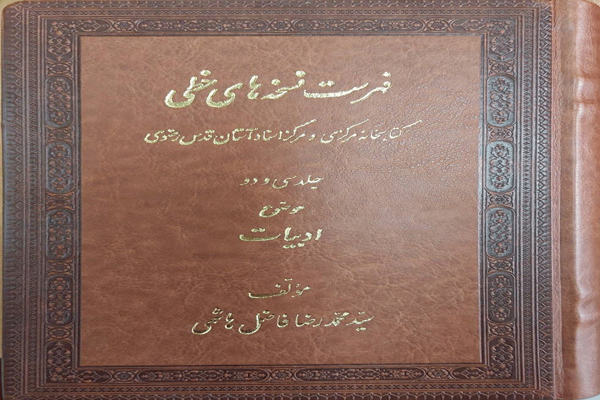 فهرست نسخه های خطی
کتابخانه مرکزی و مرکز اسناد آستان قدس رضوی
جلد سی و دو
موضوع
ادبیات
مؤلف
سید محمد رضا فاضل هاشمی